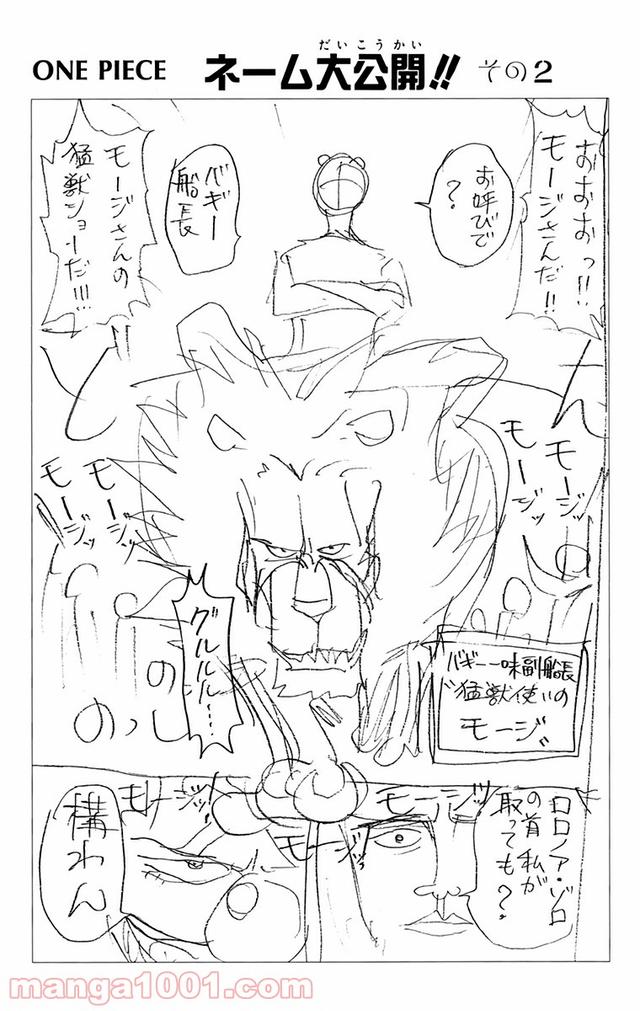 ONE PIECE ネーム大公開!! その2
だいこうかい
おおおっ!!
モージさんだ!!
お呼びで
?
バギー
船長
モージさんの
猛獣ショーだ!!!
どん
モージッ
モージッ
モージッ
モージッ
グルルル…
のっし
の
バギー一味副船長
"猛獣使いの
モージ"
ロロノア・ゾロ
の首私が
取っても?
モージッ
モージッ
モージッ
構わん
manga1001.com